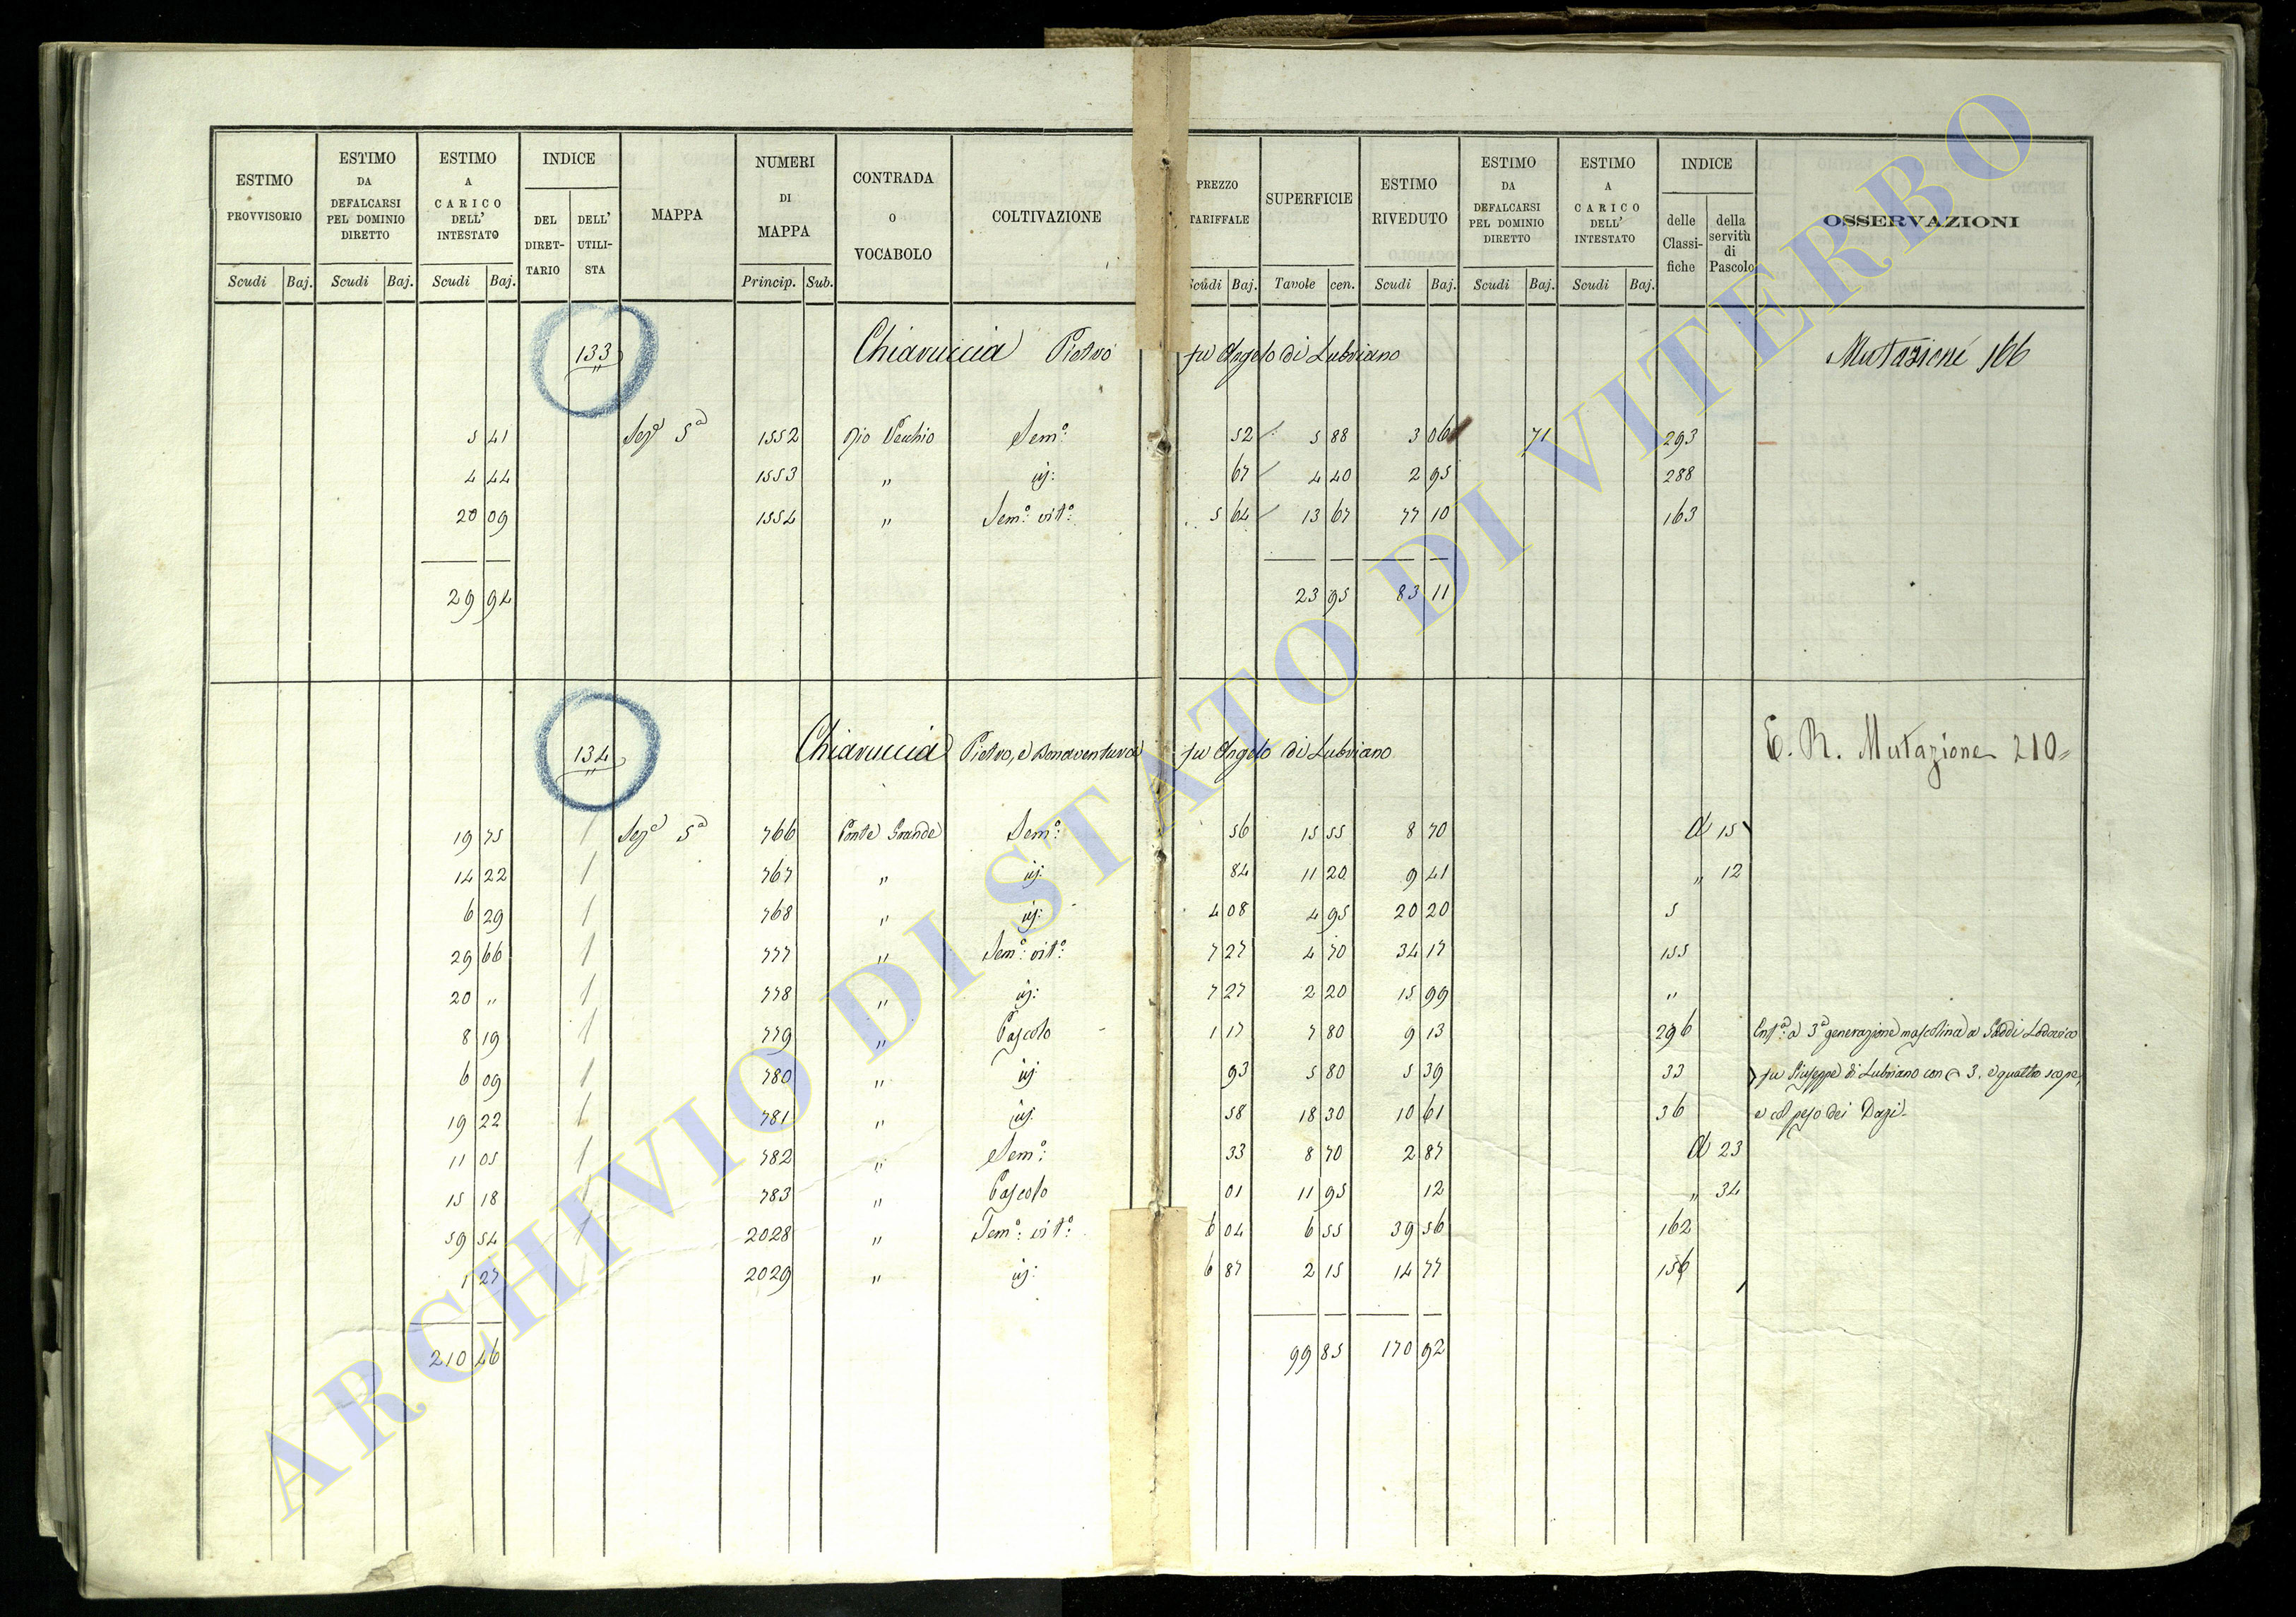 ESTIMO PROVVISORIO Scudi Baj. | ESTIMO DA DEFALCARSI PEL DOMINIO DIRETTO Scudi Baj. | ESTIMO A CARICO DELL' INTESTATO Scudi Baj. | INDICE DEL DIRETTARIO DELL' UTILISTA | MAPPA | NUMERI DI MAPPA Princip. Sub. | CONTRADA O VOCABOLO | COLTIVAZIONE | PREZZO TARIFFALE Scudi Baj. | SUPERFICIE Tavole cen. | ESTIMO RIVEDUTO Scudi Baj. | ESTIMO DA DEFALCARSI PEL DOMINIO DIRETTO Scudi Baj. | ESTIMO A CARICO DELL' INTESTATO Scudi Baj. | INDICE delle Classifiche della servitù di Pascolo | OSSERVAZIONI
133 Chiaruccia Pietro fu Angelo di Lubriano Mutazione 166
5 41 Sezª 5ª 1552 Rio Vecchio Sem.º 52 5 88 3 06 71 293
4 44 1553 " id: 67 4 40 2 95 288
20 09 1554 " Sem.º vit.º 5 64 13 67 77 10 163
29 94 23 95 83 11
134 Chiaruccia Pietro, e Bonaventura fu Angelo di Lubriano E. R. Mutazione 210
19 75 / Sezª 5ª 766 Ponte Grande Sem.º 56 15 55 8 70 A 15
14 22 / 767 " id: 84 11 20 9 41 " 12
6 29 / 768 " id: 4 08 4 95 20 20 5
29 66 / 777 " Sem.º vit.º 7 27 4 70 34 17 155
20 " / 778 " id: 7 27 2 20 15 99 "
8 19 / 779 " Pascolo 1 17 7 80 9 13 296 Enf.ª a 3ª generazione mascolina a Gaddi Lodovico
6 09 / 780 " id: 93 5 80 5 39 33 fu Giuseppe di Lubriano con 3. e quattro
19 22 / 781 " id: 58 18 30 10 61 36 e col peso dei Dazi.
11 05 / 782 " Sem.º 33 8 70 2 87 A 23
15 18 / 783 " Pascolo 01 11 95 12 " 34
59 54 / 2028 " Sem.º vit.º 6 04 6 55 39 56 162
1 27 2029 " id: 6 87 2 15 14 77 156
210 46 99 85 170 92
ARCHIVIO DI STATO DI VITERBO